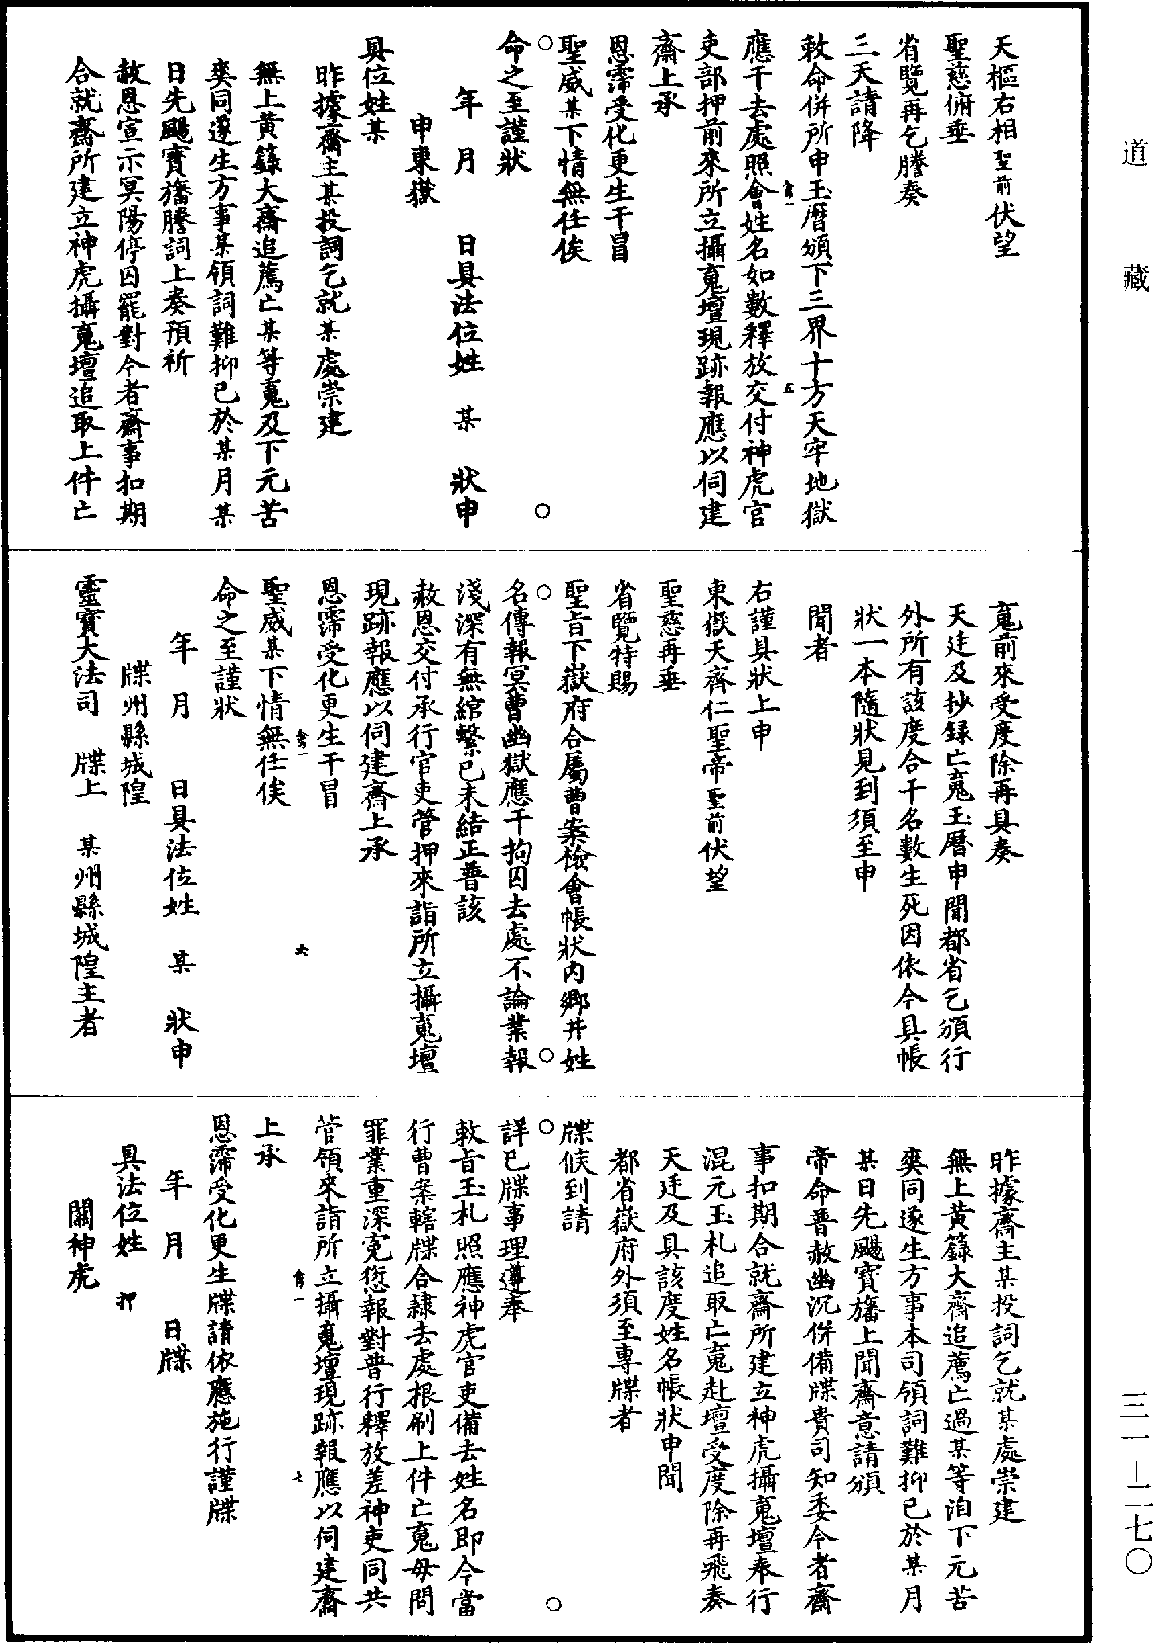 道藏
天樞右相聖前伏望
聖慈俯垂
省覽再乞謄奏
三天請降
敕命併所申玉曆頒下三界十方天牢地獄
應干去處照會姓名如數釋放交付神虎官
吏部押前來所立攝䰟壇現跡報應以伺建
齋上承
恩霈受化更生干冒
聖威某下情無任俟
命之至謹狀
年 月 日具法位姓 某 狀申
申東嶽
具位姓某
昨據齋主某投詞乞就某處崇建
無上黃籙大齋追薦亡某等䰟及下元苦
爽同遂生方事某領詞難抑已於某月某
日先颺寶旛謄詞上奏預祈
赦恩宣示冥陽停囚罷對今者齋事扣期
合就齋所建立神虎攝䰟壇追取上件亡
䰟前來受度除再具奏
天廷及抄錄亡䰟玉曆申聞都省乞頒行
外所有該度合干名數生死因依今具帳
狀一本隨狀見到須至申
聞者
右謹具狀上申
東嶽天齊仁聖帝聖前伏望
聖慈再垂
省覽特賜
聖旨下獄府合屬曹案檢會帳狀內鄉井姓
名傳報冥曹幽獄應干拘囚去處不論業報
淺深有無綰繫已未結正普該
赦恩交付承行官吏管押來詣所立攝䰟壇
現跡報應以伺建齋上承
恩霈受化更生干冒
聖威某下情無任俟
命之至謹狀
年 月 日具法位姓 某 狀申
牒州縣城隍
靈寶大法司 牒上 某州縣城隍主者
昨據齋主某投詞乞就某處崇建
無上黃籙大齋追薦亡過某等洎下元苦
爽同遂生方事本司領詞難抑已於某月
某日先颺寶旛上聞齋意請頒
帝命普赦幽沉併備牒貴司知委今者齋
事扣期合就齋所建立神虎攝䰟壇奉行
混元玉札追取亡䰟赴壇受度除再飛奏
天廷及具該度姓名帳狀申聞
都省嶽府外須至專牒者
牒候到請
詳已牒事理遵奉
敕旨玉札照應神虎官吏備去姓名即今當
行曹案轄牒合隸去處根刷上件亡䰟毋問
罪業重深寃愆報對普行釋放差神吏同共
管領來詣所立攝䰟壇現跡報應以伺建齋
上承
恩霈受化更生牒請依應施行謹牒
年 月 日牒
具法位姓 押
關神虎
三一—二七〇